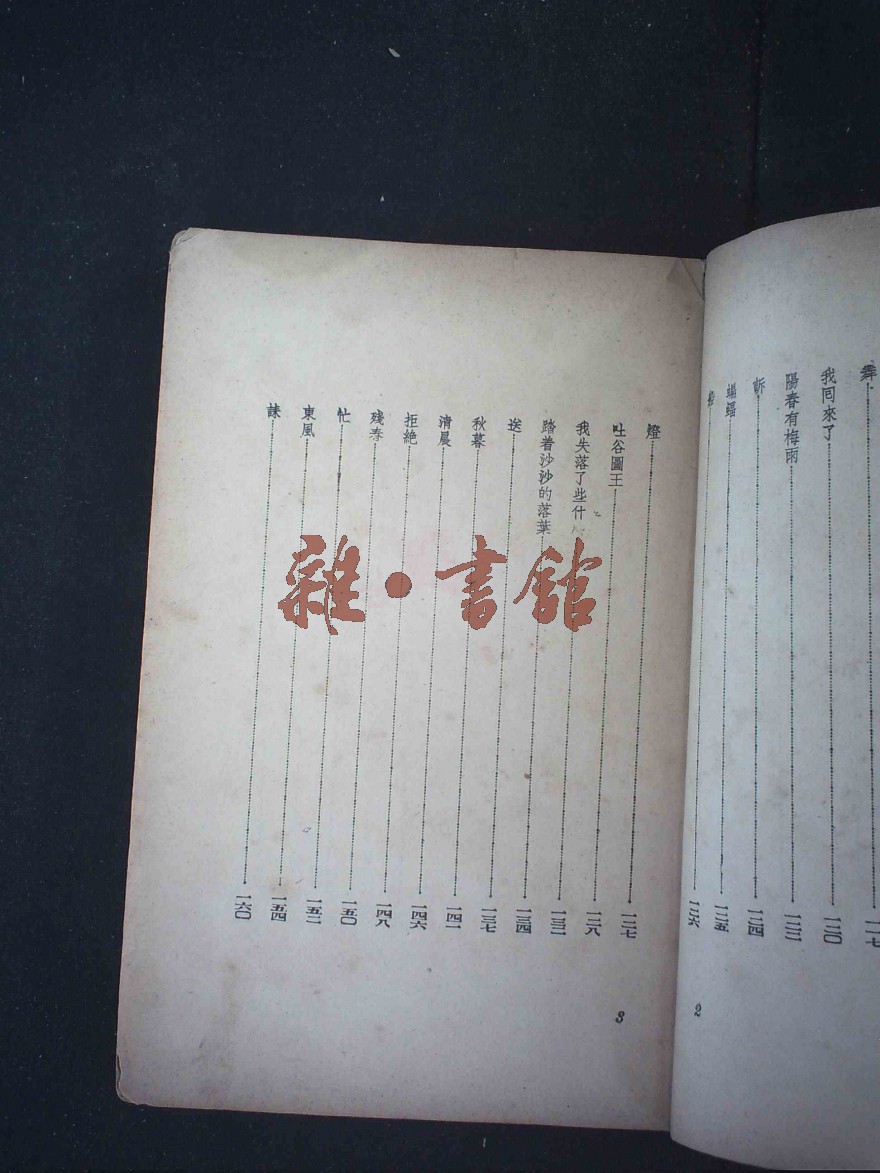 舞⋯⋯一一七
我回來了⋯⋯一二〇
陽春有梅雨⋯⋯一二二
訴⋯⋯一二四
蝙蝠⋯⋯一二五
⋯⋯一二六
2
燈⋯⋯一二七
吐谷圖王⋯⋯一二八
我失落了些什⋯⋯一三二
踏着沙沙的落葉⋯⋯一三四
送⋯⋯一三七
秋暮⋯⋯一四二
清晨⋯⋯一四六
拒絕⋯⋯一四八
殘春⋯⋯一五〇
忙⋯⋯一五二
東風⋯⋯一五四
誄⋯⋯一六〇
3
雜·書館